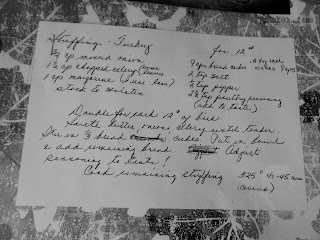 Stuffing - Turkey for 12#
3/4 cup minced onion 9 cups bread cubes
1 1/2 cup chopped celery 2 tsp salt
1 cup margarine (I use less) 1/2 tsp pepper
stock to moisten poultry seasoning
(add to taste)
Double for each 12# of bird.
Sauté butter, onions celery until tender.
Stir in bread cubes. Put in bowl
& add remaining bread Adjust
seasoning to taste!
Cook remaining stuffing 325° 40-45 min
(covered)